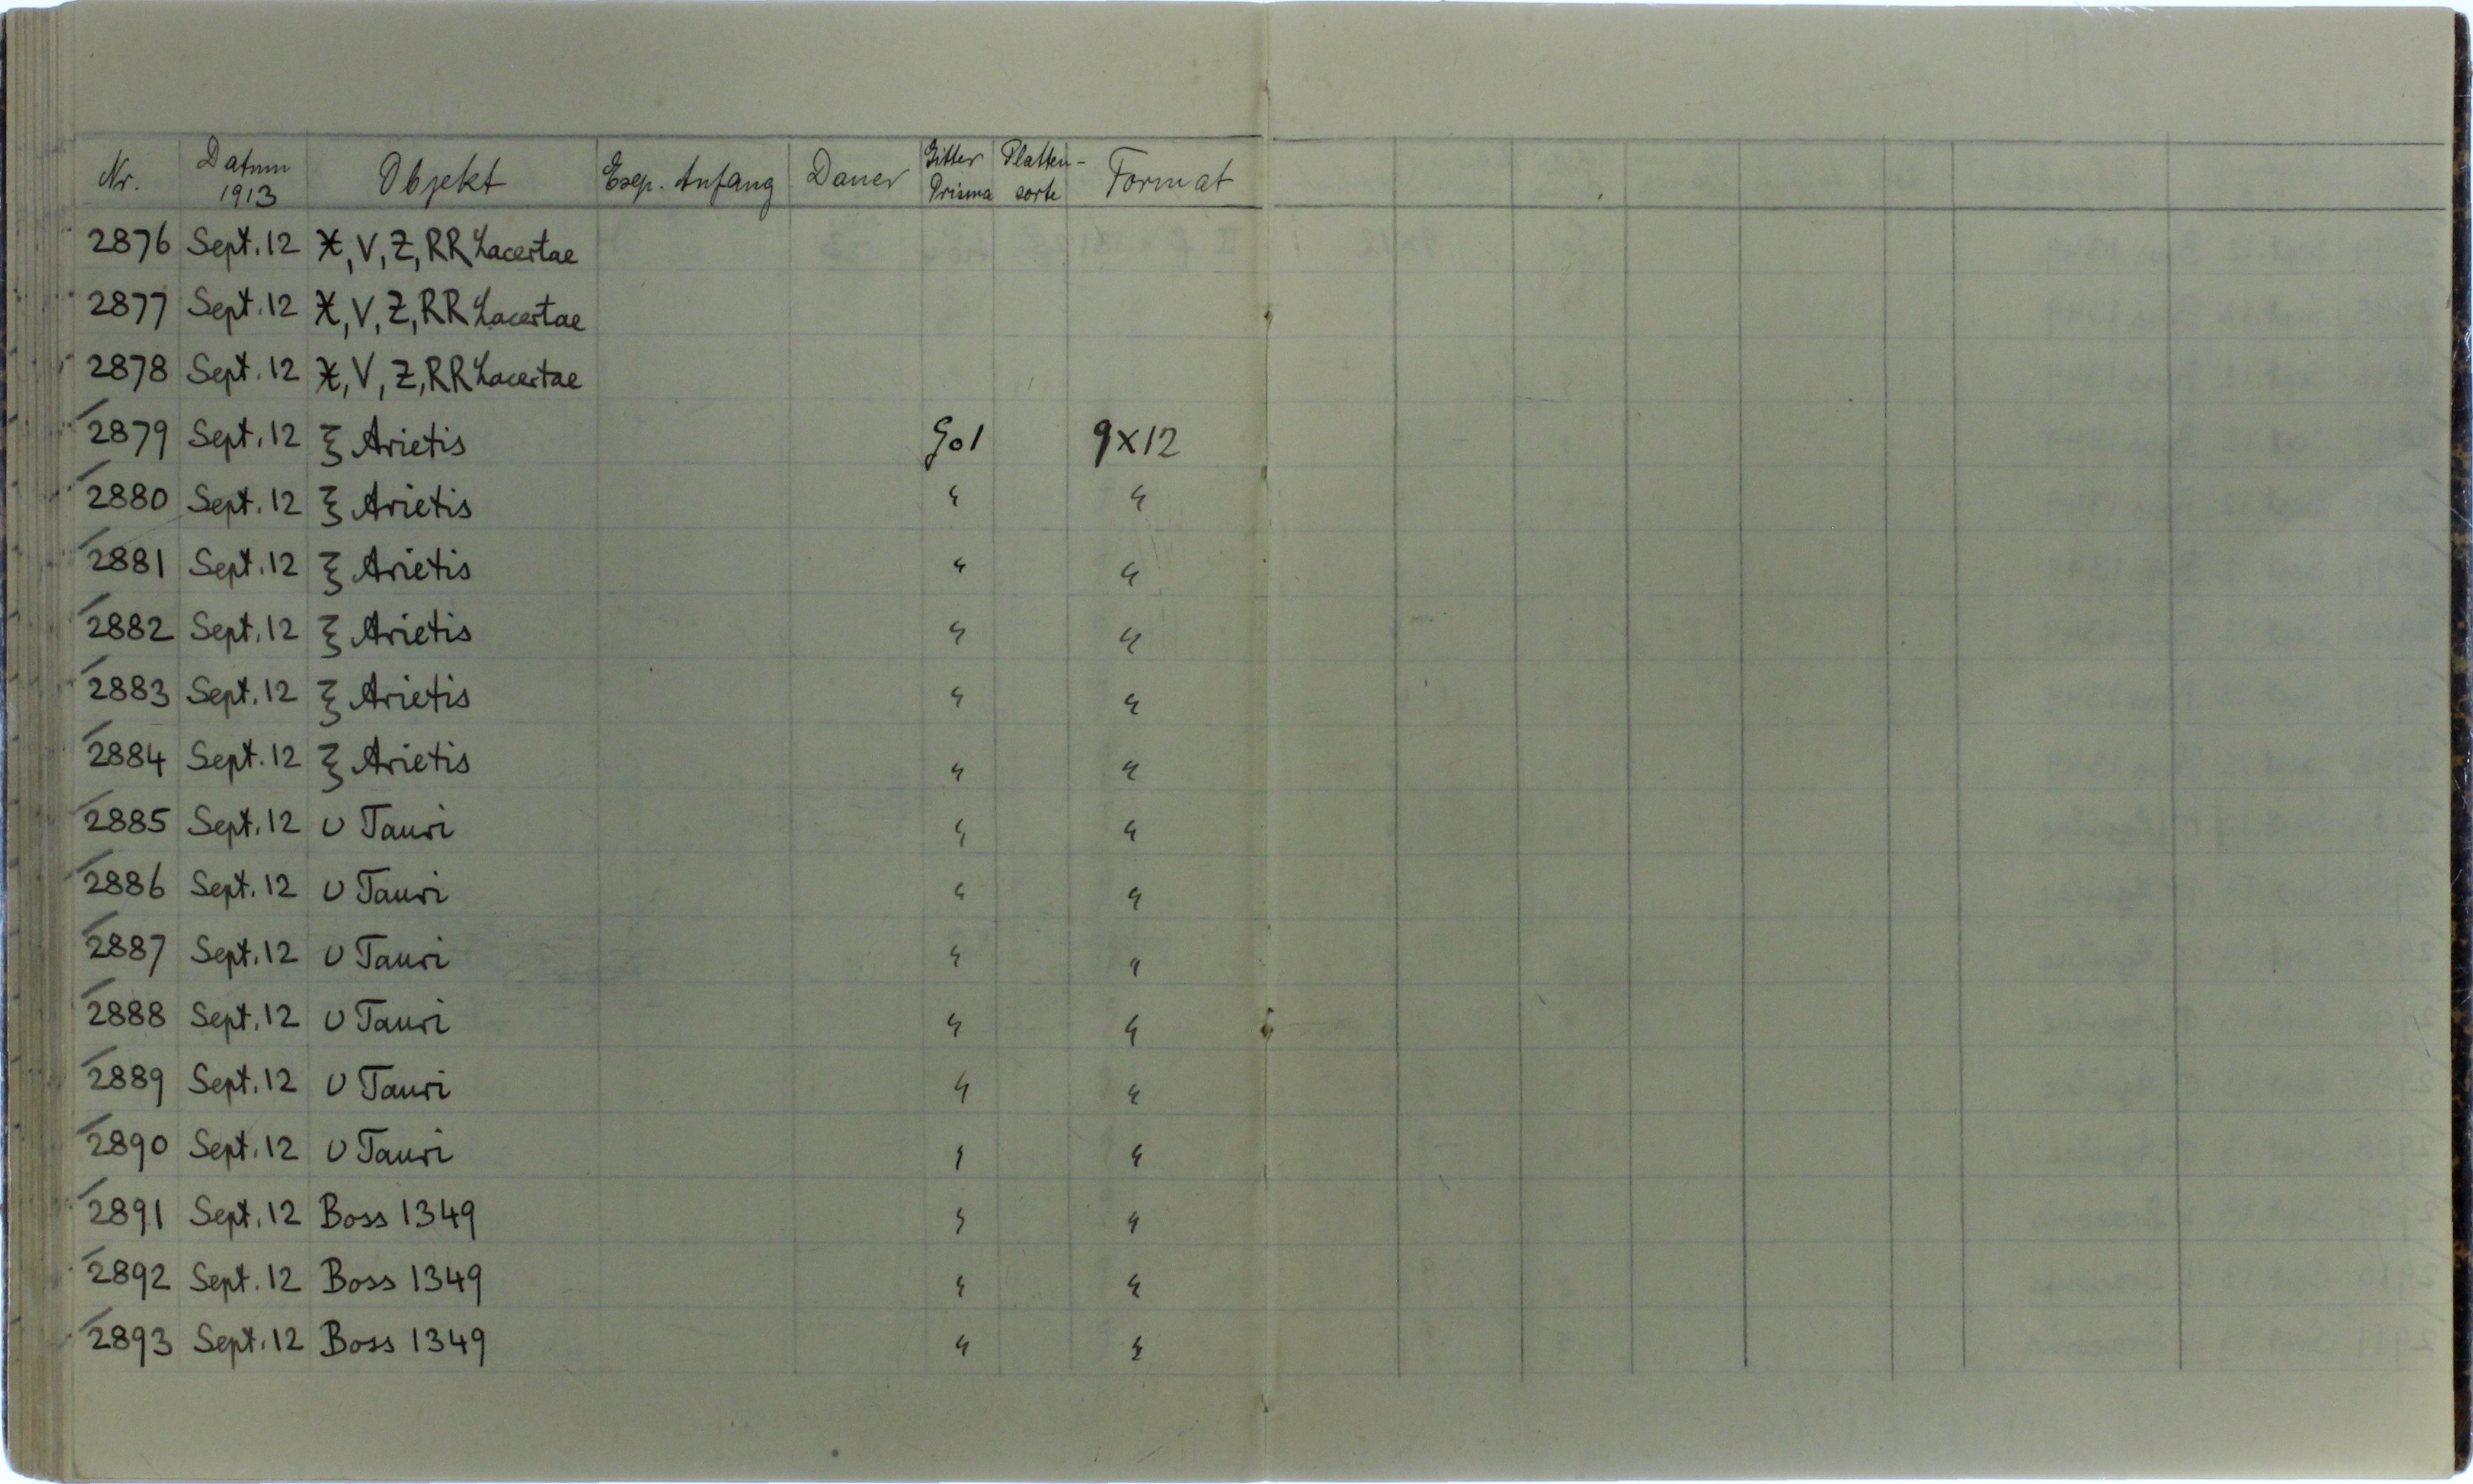 Nr. Datum 1913 Objekt Exp. Anfang Dauer Gitter Prisma Platten-sorte Format
2876 Sept. 12 X, V, Z, RR Lacertae
2877 Sept. 12 X, V, Z, RR Lacertae
2878 Sept. 12 X, V, Z, RR Lacertae
2879 Sept. 12 ξ Arietis Go1 9x12
2880 Sept. 12 ξ Arietis " "
2881 Sept. 12 ξ Arietis " "
2882 Sept. 12 ξ Arietis " "
2883 Sept. 12 ξ Arietis " "
2884 Sept. 12 ξ Arietis " "
2885 Sept. 12 υ Tauri " "
2886 Sept. 12 υ Tauri " "
2887 Sept. 12 υ Tauri " "
2888 Sept. 12 υ Tauri " "
2889 Sept. 12 υ Tauri " "
2890 Sept. 12 υ Tauri " "
2891 Sept. 12 Boss 1349 " "
2892 Sept. 12 Boss 1349 " "
2893 Sept. 12 Boss 1349 " "